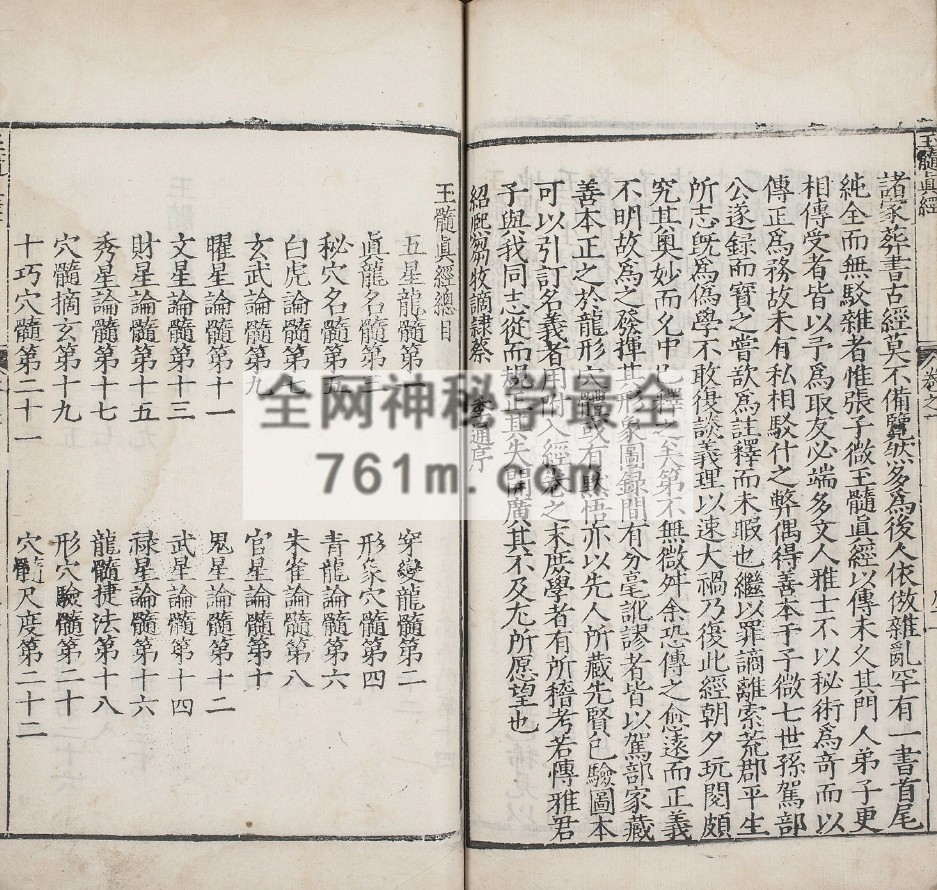 玉髓真經
卷之一
諸家葬書古經莫不備覽然多爲後人依倣雜亂罕有一書首尾
純全而無駁雜者惟張子微玉髓眞經以傳未久其門人弟子更
相傳受者皆以予爲取友必端多文人雅士不以秘術爲奇而以
傳正爲務故未有私相駁什之弊偶得善本于子微七世孫駕部
公遂録而寶之嘗欲爲註釋而未暇也繼以罪謫離索荒郡平生
所志旣爲僞學不敢復談義理以速大禍乃復此經朝夕玩閱頗
究其奥妙而允中已釋之矣第不無微舛余恐傳之愈遠而正義
不明故爲之發揮其形象圖録間有分毫訛謬者皆以駕部家藏
善本正之於龍形穴體或有默悟亦以先人所藏先賢已驗圖本
可以引訂名義者用附入經卷之末庶學者有所稽考若傳雅君
子與我同志從而規正其失開廣其不及尢所愿望也
紹熈芻牧謫隷蔡 通序
玉髓眞經總目
五星龍髓第一 穿變龍髓第二
眞龍名髓第三 形象穴髓第四
秘穴名髓第五 青龍論髓第六
白虎論髓第七 朱雀論髓第八
玄武論髓第九 官星論髓第十
曜星論髓第十一 鬼星論髓第十二
文星論髓第十三 武星論髓第十四
財星論髓第十五 禄星論髓第十六
秀星論髓第十七 龍髓捷法第十八
穴髓摘玄第十九 形穴驗髓第二十
十巧穴髓第二十一 穴髓尺度第二十二
全网神秘学最全
761m.com